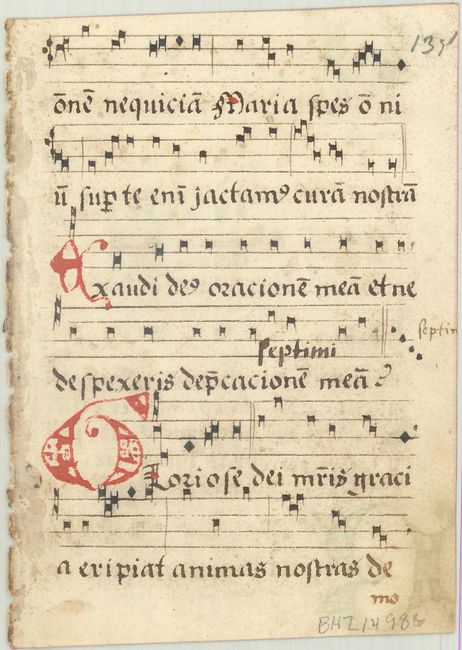 139
om̄ē nequiciā Maria spes ō ni
ū sup̱ te enī jactamꝰ curā nostrā
Exaudi deꝰ oracionē meā et ne
septimi
despexeris dep̄cacionē meā
Gloriose dei mr̄is graci
a eripiat animas nostras de
mo